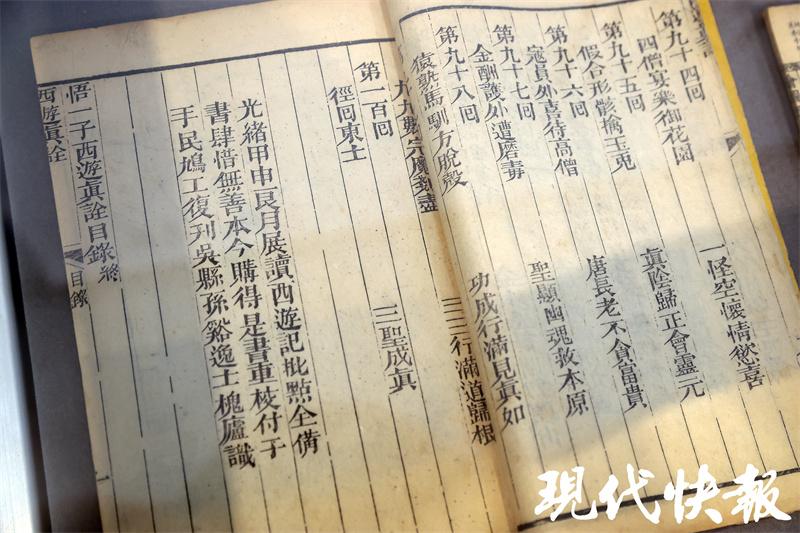 第九十四回
四僧宴樂御花園 一怪空懷情慾喜
第九十五回
假合形骸擒玉兎 眞陰歸正會靈元
第九十六回
寇員外喜待高僧 唐長老不貪富貴
第九十七回
金酬護外遭磨毒 聖顯幽魂救本原
第九十八回
猿熟馬馴方脫殼 功成行滿見眞如
九九數完魔盡 三三行滿道歸根
第一百回
徑回東土 三聖成眞
光緒甲申艮月展讀西遊記批點全備
書肆惜無善本今購得是書重校付于
手民鳩工復刊吳縣孫谿逸士槐廬識
悟一子西遊眞詮目錄終
西遊眞詮 目錄
現代快報